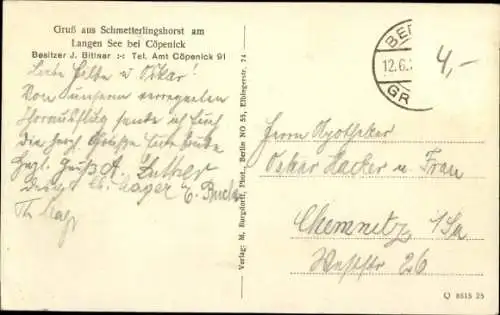 Gruß aus Schmetterlingshorst am
Langen See bei Cöpenick
Besitzer J. Bittner :-: Tel. Amt Cöpenick 91
Liebe Hilde u Oskar!
Von unserm verregneten
sende ich Euch
die herzl. Grüße
Herzl. Gruß A.
Verlag: M. Burgdorff, Phot., Berlin NO 55, Elbingerstr. 74
BER
12.6.
GR
4,-
Herrn Apotheker
Oskar Hacker u. Frau
Chemnitz i/Sa
Weststr 26
Q 8615 25